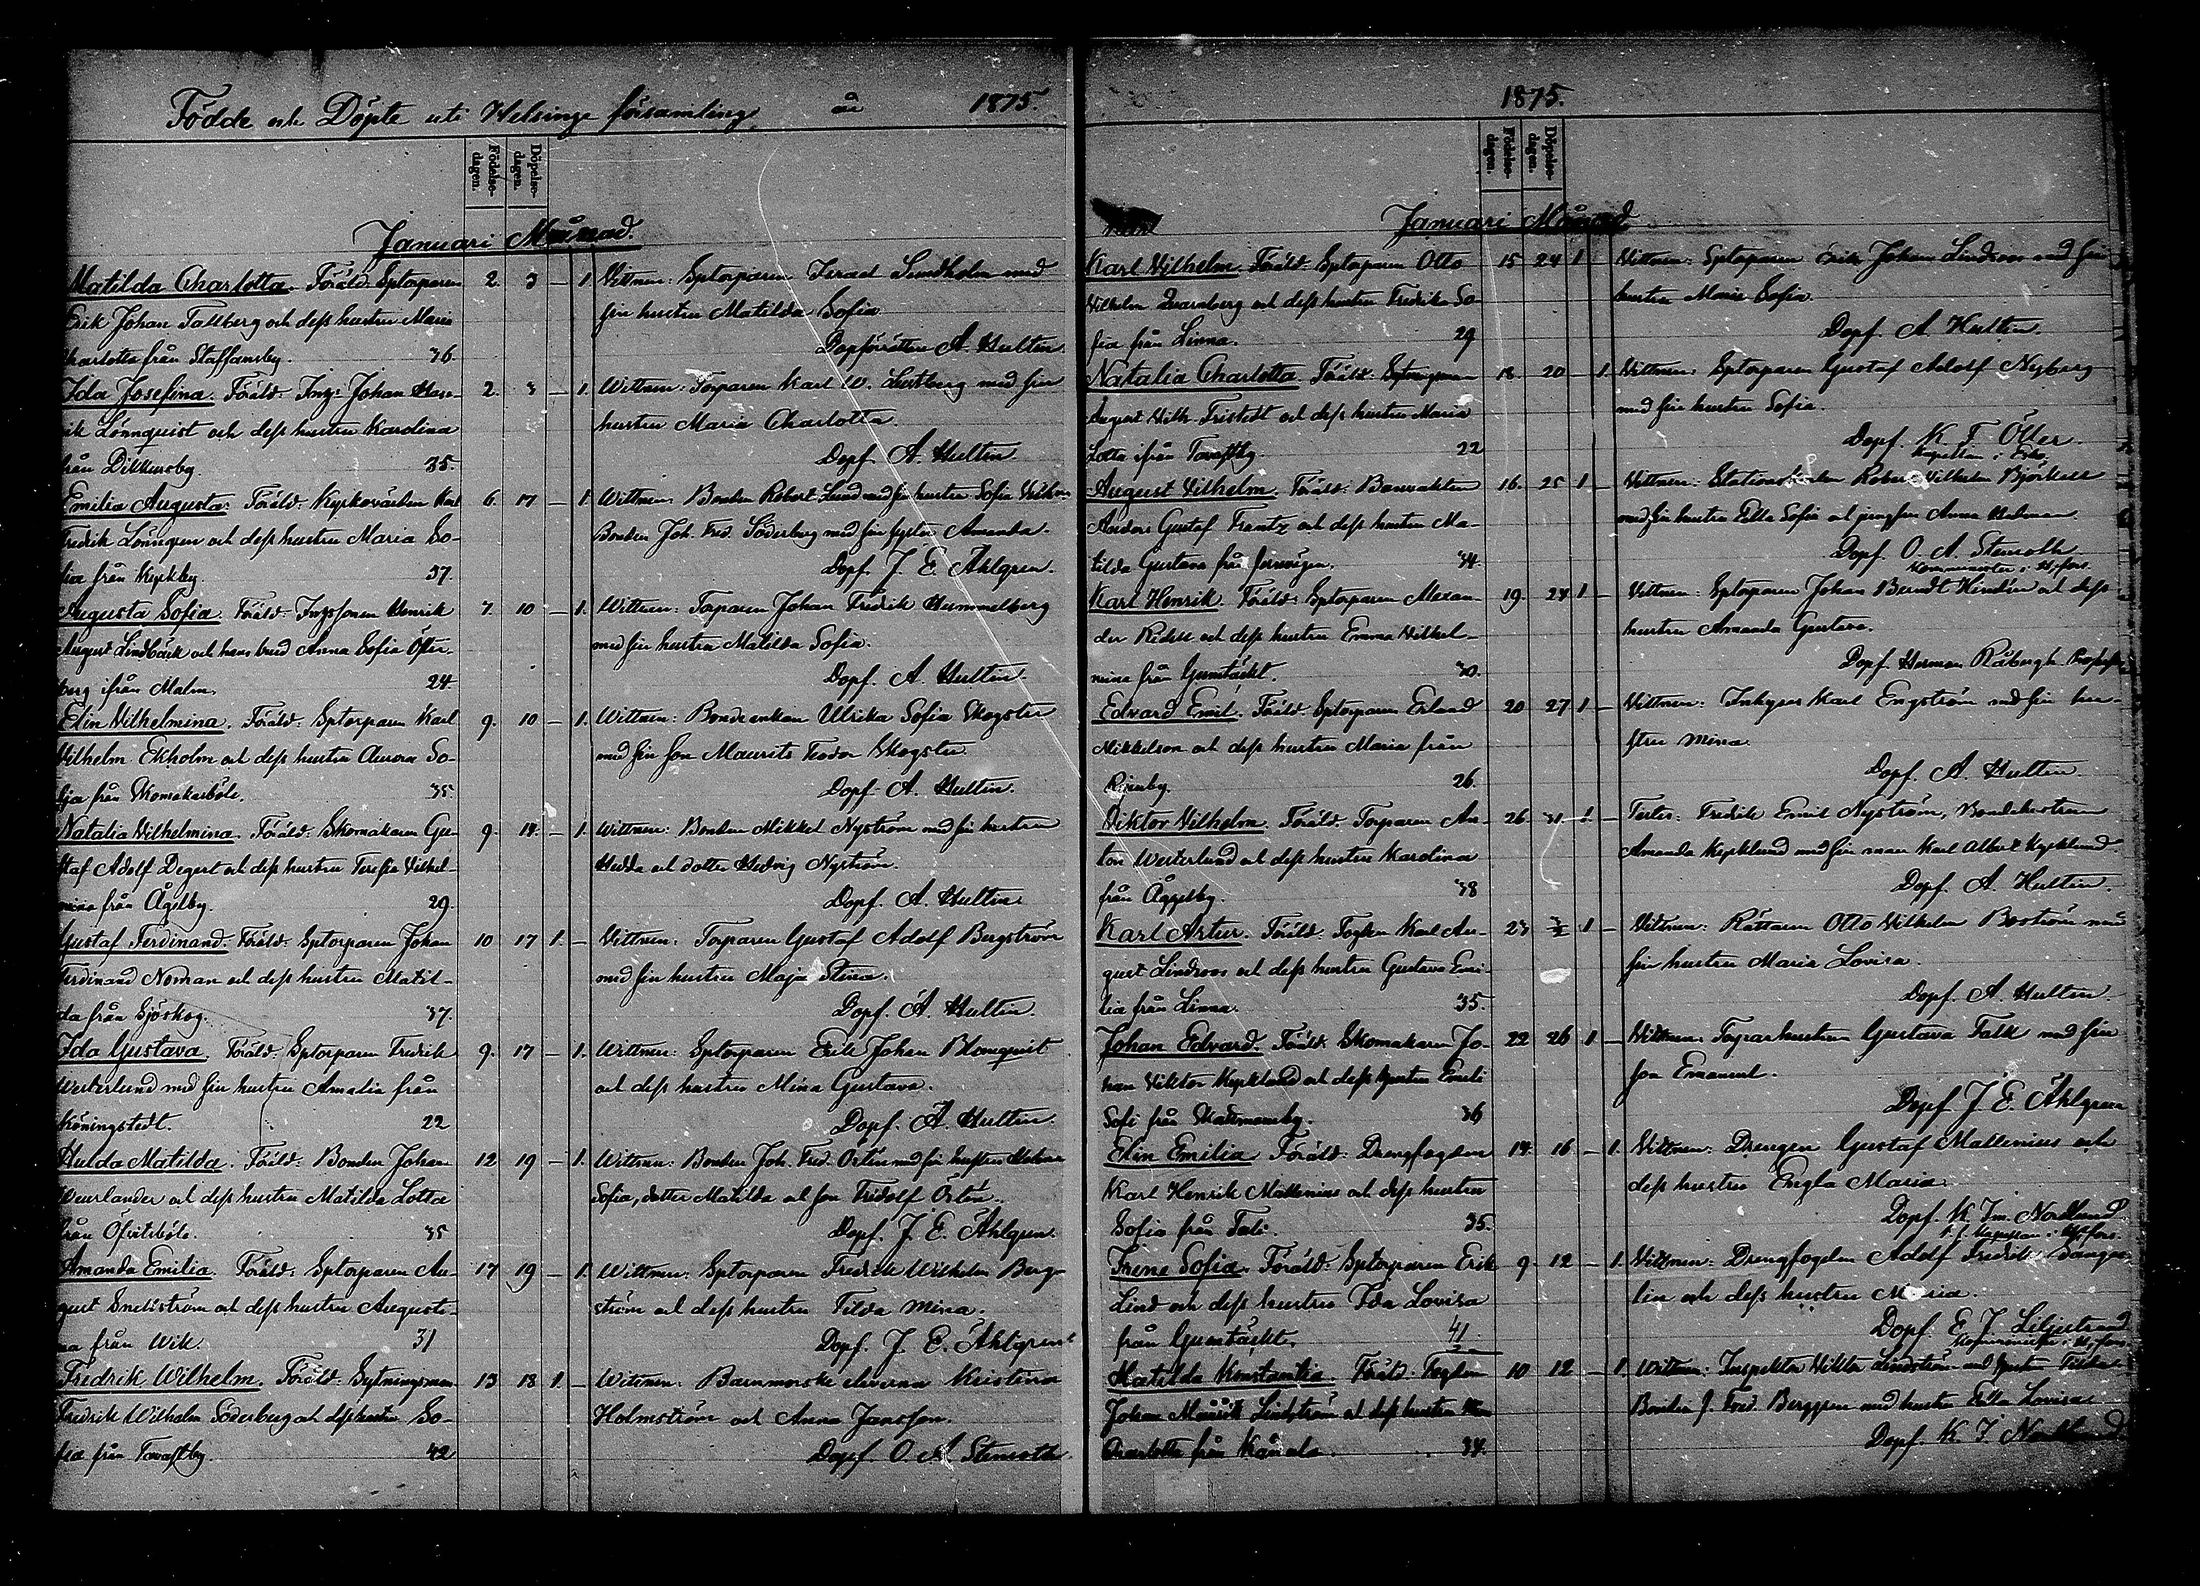 Födde och Döpte uti Helsinge församling, år 1875.
Födelse-dagen.
Döpelse-dagen.
Januari Månad.
Matilda Charlotta. Föräld: Sptorparen 2. 3 — 1. Vittnen: Sptorparen Israel Sundholm med
Erik Johan Tallberg och dess hustru Maria sin hustru Matilda Sofia.
Charlotta från Staffansby. 36 Dopförrättare A. Hultin
Ida Josefina. Föräld: Johan 2. 3 — 1. Wittnen: Torparen Karl W. Lustberg med sin
Lönnquist och dess hustru Karolina hustru Maria Charlotta.
från Dickursby. 35. Dopf. A. Hultin
Emilia Augusta. Föräld: Kyrkovärden Karl 6. 17 — 1. Wittnen: Bonden Robert Lund med sin hustru Sofia
Fredrik Lönngren och dess hustru Maria So- Bonden Joh. Fred. Söderberg med sin syster Amanda.
fia från Kyrkby. 37. Dopf. J. E. Åhlgren.
Augusta Sofia. Föräld: Henrik 7. 10 — 1. Wittnen: Torparen Johan Fredrik Hummelberg
August Lindbäck och hans brud Anna Sofia Öster- med sin hustru Matilda Sofia.
berg ifrån Malm. 24. Dopf. A. Hultin.
Elin Vilhelmina. Föräld: Sptorparen Karl 9. 10 — 1. Wittnen: Bondeenkan Ulrika Sofia Skogster
Vilhelm Ekholm och dess hustru Aurora So- med sin son Maurits Teodor Skogster.
fja från Skomakarböle. 35 Dopf. A. Hultin.
Natalia Vilhelmina. Föräld: Skomakaren Gu- 9. 18. — 1. Wittnen: Bonden Mikkel Nyström med sin hustru
staf Adolf Degert och dess hustru Teresia Vilhel- Hedda och dotter Hedvig Nyström.
mina från Ågelby. 29. Dopf. A. Hultin
Gustaf Ferdinand. Föräld: Sptorparen Johan 10 17 1. — Vittnen: Torparen Gustaf Adolf Bergström
Ferdinand Noman och dess hustru Matil- med sin hustru Maja Stina.
da från Sjöskog. 37. Dopf. A. Hultin
Ida Gustava. Föräld: Sptorparen Fredrik 9. 17 — 1. Wittnen: Sptorparen Erik Johan Blomquist
Westerlund med sin hustru Amalia från och dess hustru Mina Gustava.
Köningstedt. 22 Dopf. A. Hultin.
Hulda Matilda. Föräld: Bonden Johan 12 19 — 1. Wittnen: Bonden Joh. Fred. Östén med sin hustru
Weurlander och dess hustru Matilda Lotta Sofia, dotter Matilda och son Fridolf Östén.
från Öfvitsböle. 35 Dopf. J. E. Åhlgren.
Amanda Emilia. Föräld: Sptorparen Au- 17 19 — 1. Wittnen: Sptorparen Fredrik Wilhelm Berg-
gust Snellström och dess hustru Augusti- ström och dess hustru Tilda Mina.
na från Wik. 31 Dopf. J. E. Åhlgren
Fredrik Wilhelm. Föräld: Sytningsman 13 18 1. — Wittnen: Barnmorske eleverna Kristina
Fredrik Wilhelm Söderberg och dess hustru So- Holmström och Anna Jansson.
fia från Tavastby. 42 Dopf. O. A. Stenroth
1875.
Födelse-dagen.
Döpelse-dagen.
Januari Månad
Karl Vilhelm. Föräld: Sptorparen Otto 15 24 1 Vittnen: Sptorparen Erik Johan Lindroos med sin
Vilhelm Qvarnberg och dess hustru Fredrika So- hustru Maria Sofia.
fia från Linna. 29 Dopf. A. Hultin.
Natalia Charlotta. Föräld: 18. 20 — 1. Vittnen: Sptorparen Gustaf Adolf Nyberg
August Vilh. Fristedt och dess hustru Maria med sin hustru Sofia.
Lotta ifrån Tavastby. 22 Dopf. K. F. Öller.
Kapellan i Esbo
August Vilhelm. Föräld: Banvakten 16. 25 1 — Vittnen: Robert Vilhelm Björkell
Anders Gustaf Frantz och dess hustru Ma- med sin hustru Edla Sofia och jungfrun Anna Hedman
tilda Gustava från Jernvägen. 34. Dopf. O. A. Stenroth
Kommunister i H:fors.
Karl Henrik. Föräld: Sptorparen Alexan- 19. 24 1 — Vittnen: Sptorparen Johan Berndt Hindén och dess
der Ridell och dess hustru Emma Vilhel- hustru Amanda Gustava.
mina från Gumtäckt. 30. Dopf. Herman Råbergh
Edvard Emil. Föräld: Sptorparen Erland 20 27 1 — Vittnen: Inhyses Karl Engström med sin hu-
Mikkelson och dess hustru Maria från stru Mina.
26. Dopf. A. Hultin.
Viktor Vilhelm. Föräld: Torparen An- 26 31 1 — Testes: Fredrik Emil Nyström, Bondehustrun
ton Westerlund och dess hustru Karolina Amanda Kyrklund med sin man Karl Albert Kyrklund.
från Åggelby. 38 Dopf. A. Hultin.
Karl Artur. Föräld: Fogden Karl Au- 23 1 — Vittnen: Rättaren Otto Vilhelm Boström med
gust Lindroos och dess hustru Gustava Emi- sin hustru Maria Lovisa.
lia från Linna. 35. Dopf. A. Hultin.
Johan Edvard. Föräld: Skomakaren Jo- 22 26 1 — Vittnen: Gustava Falk med sin
han Viktor Kyrklund och dess hustru Emili son Emanuel.
Sofi från 36 Dopf. J. E. Åhlgren
Elin Emilia Föräld: Drengfogden 14 16 — 1. Vittnen: Drengen Gustaf Mallenius och
Karl Henrik Mallenius och dess hustru dess hustru Engla Maria.
Sofia från Tali. 35. Dopf. K. Im. Nordlund
Irene Sofia. Föräld: Sptorparen Erik 9 12 — 1. Vittnen: Drengfogden Adolf Fredrik
Lind och dess hustru Ida Lovisa och dess hustru Maria.
från Gumtäckt. 41. Dopf. E. J. Liljestrand
Matilda Konstantia. Föräld: Fogden 10 12 — 1. Wittnen: Inspektor Viktor Lindström med hustru
Johan Maurik Lindström och dess hustru Bonden J. Fred. Berggren med hustru Edla Lovisa.
Charlotta från Kånala. 34. Dopf. K. I. Nordlund